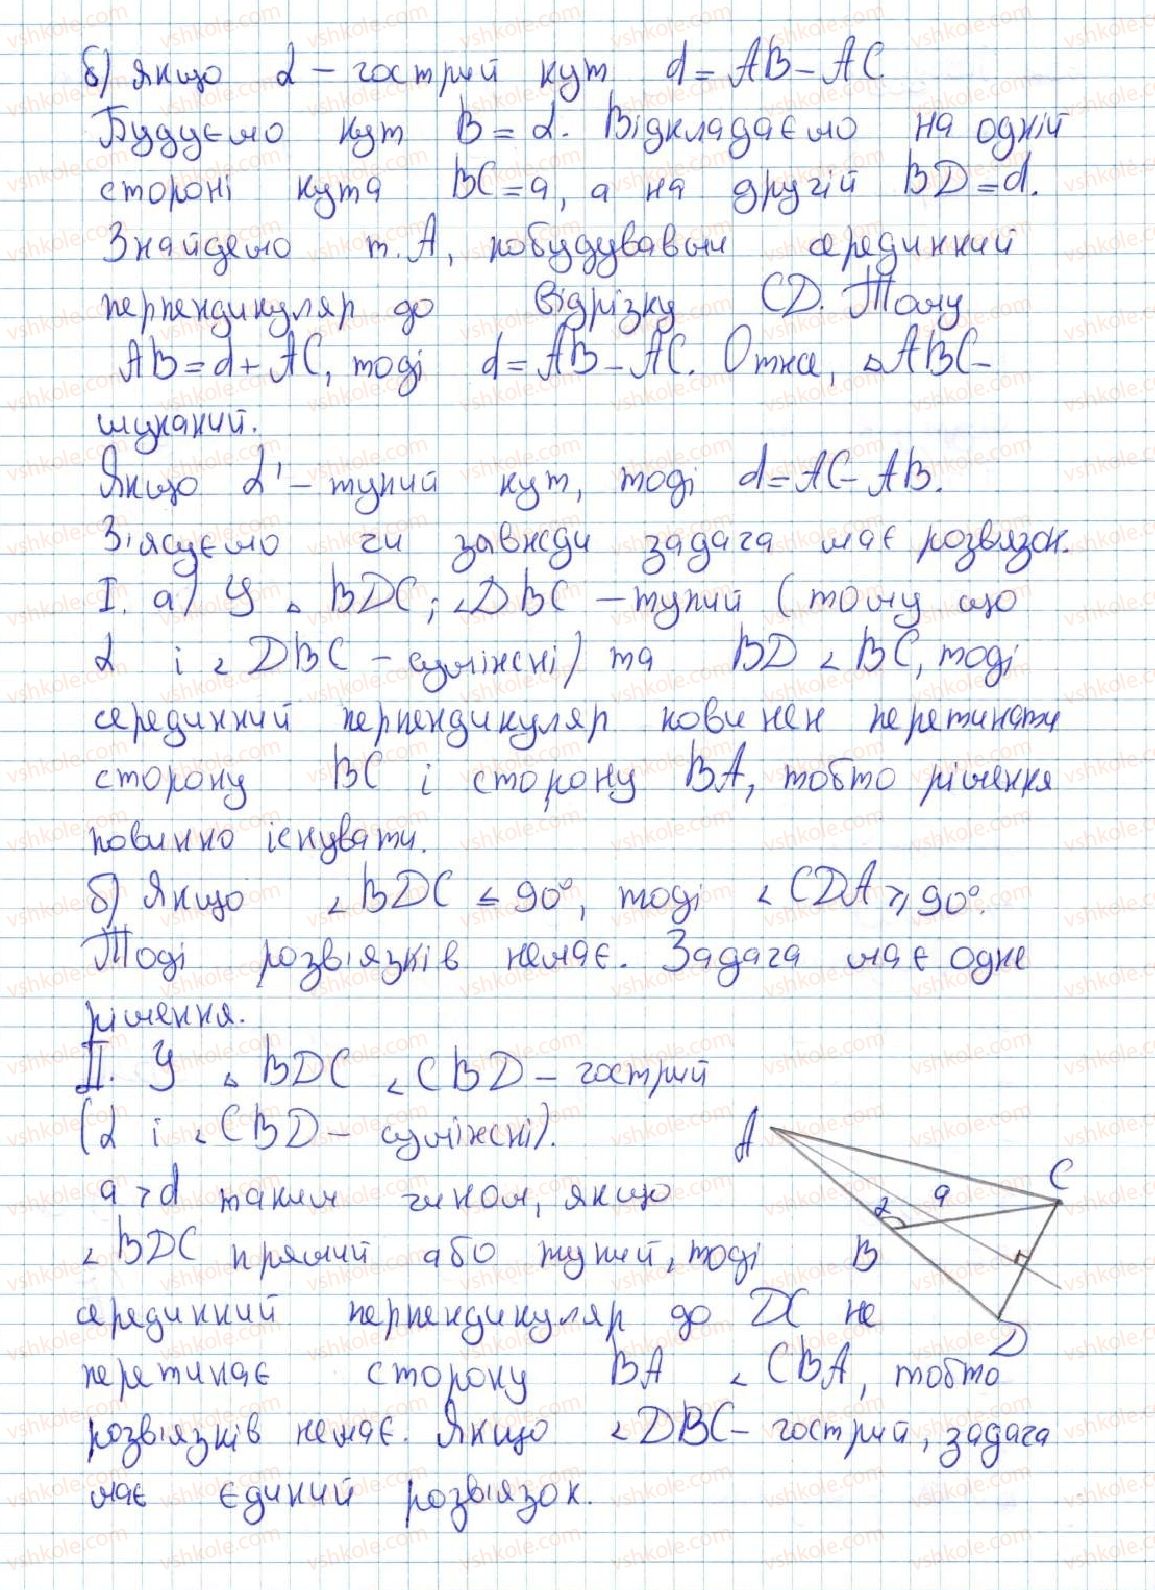 б) Якщо α – гострий кут d = AB – AC.
Будуємо кут B = α. Відкладаємо на одній
стороні кута BC = a, а на другій BD = d.
Знайдемо т. A, побудувавши серединний
перпендикуляр до відрізку CD. Тому
AB = d + AC, тоді d = AB – AC. Отже, △ABC –
шуканий.
Якщо α' – тупий кут, тоді d = AC – AB.
З'ясуємо чи завжди задача має розв'язок.
I. а) У △ BDC; ∠DBC – тупий (тому що
α і ∠DBC – суміжні) та BD < BC, тоді
серединний перпендикуляр повинен перетинати
сторону BC і сторону BA, тобто рішення
повинно існувати.
б) Якщо ∠BDC ≤ 90°, тоді ∠CDA ⩾ 90°.
Тоді розв'язків немає. Задача має одне
рішення.
II. У △ BDC ∠CBD – гострий
(α і ∠CBD – суміжні).
a > d таким чином, якщо
∠BDC прямий або тупий, тоді
серединний перпендикуляр до DC не
перетинає сторону BA ∠CBA, тобто
розв'язків немає. Якщо ∠DBC – гострий, задача
має єдиний розв'язок.
A
C
a
α
B
D
vshkole.com